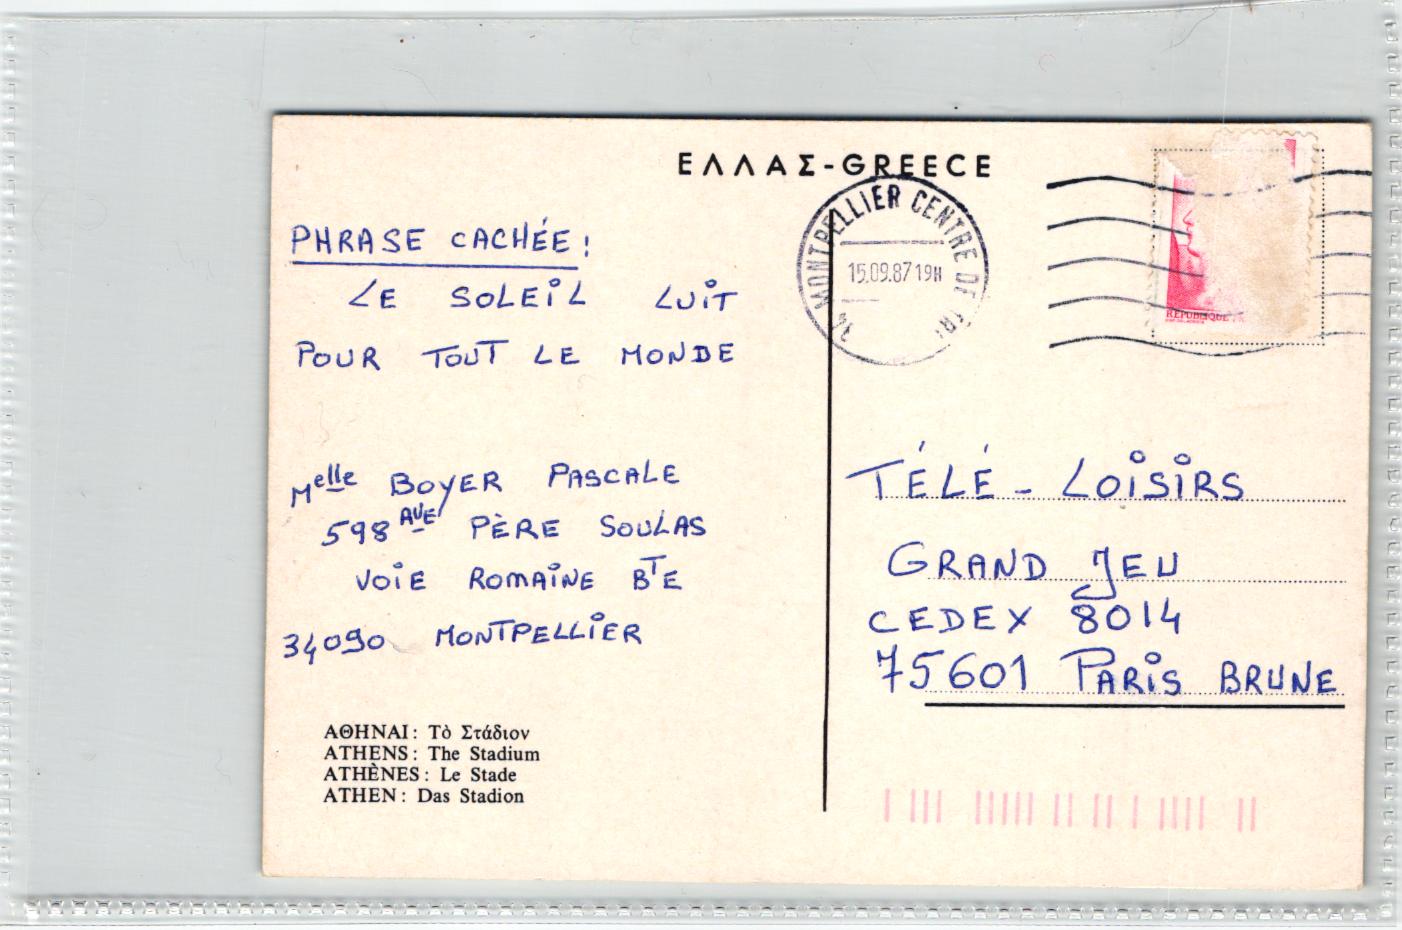 ΕΛΛΑΣ-GREECE
PHRASE CACHÉE :
LE SOLEIL LUIT
POUR TOUT LE MONDE
Melle BOYER PASCALE
598 AVE PÈRE SOULAS
VOIE ROMAINE BTE
34090 MONTPELLIER
ΑΘΗΝΑΙ : Τὸ Στάδιον
ATHENS : The Stadium
ATHÈNES : Le Stade
ATHEN : Das Stadion
34 MONTPELLIER CENTRE DE TRI
15.09.87 19H
REPUBLIQUE
TÉLÉ - LOISIRS
GRAND JEU
CEDEX 8014
75601 PARIS BRUNE